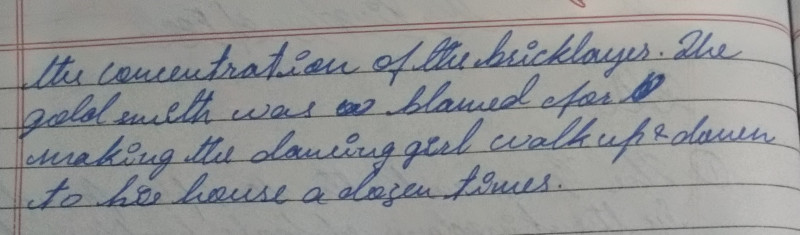 the concentration of the bricklayer. The
goldsmith was blamed for
making the dancing girl walk up & down
to his house a dozen times.